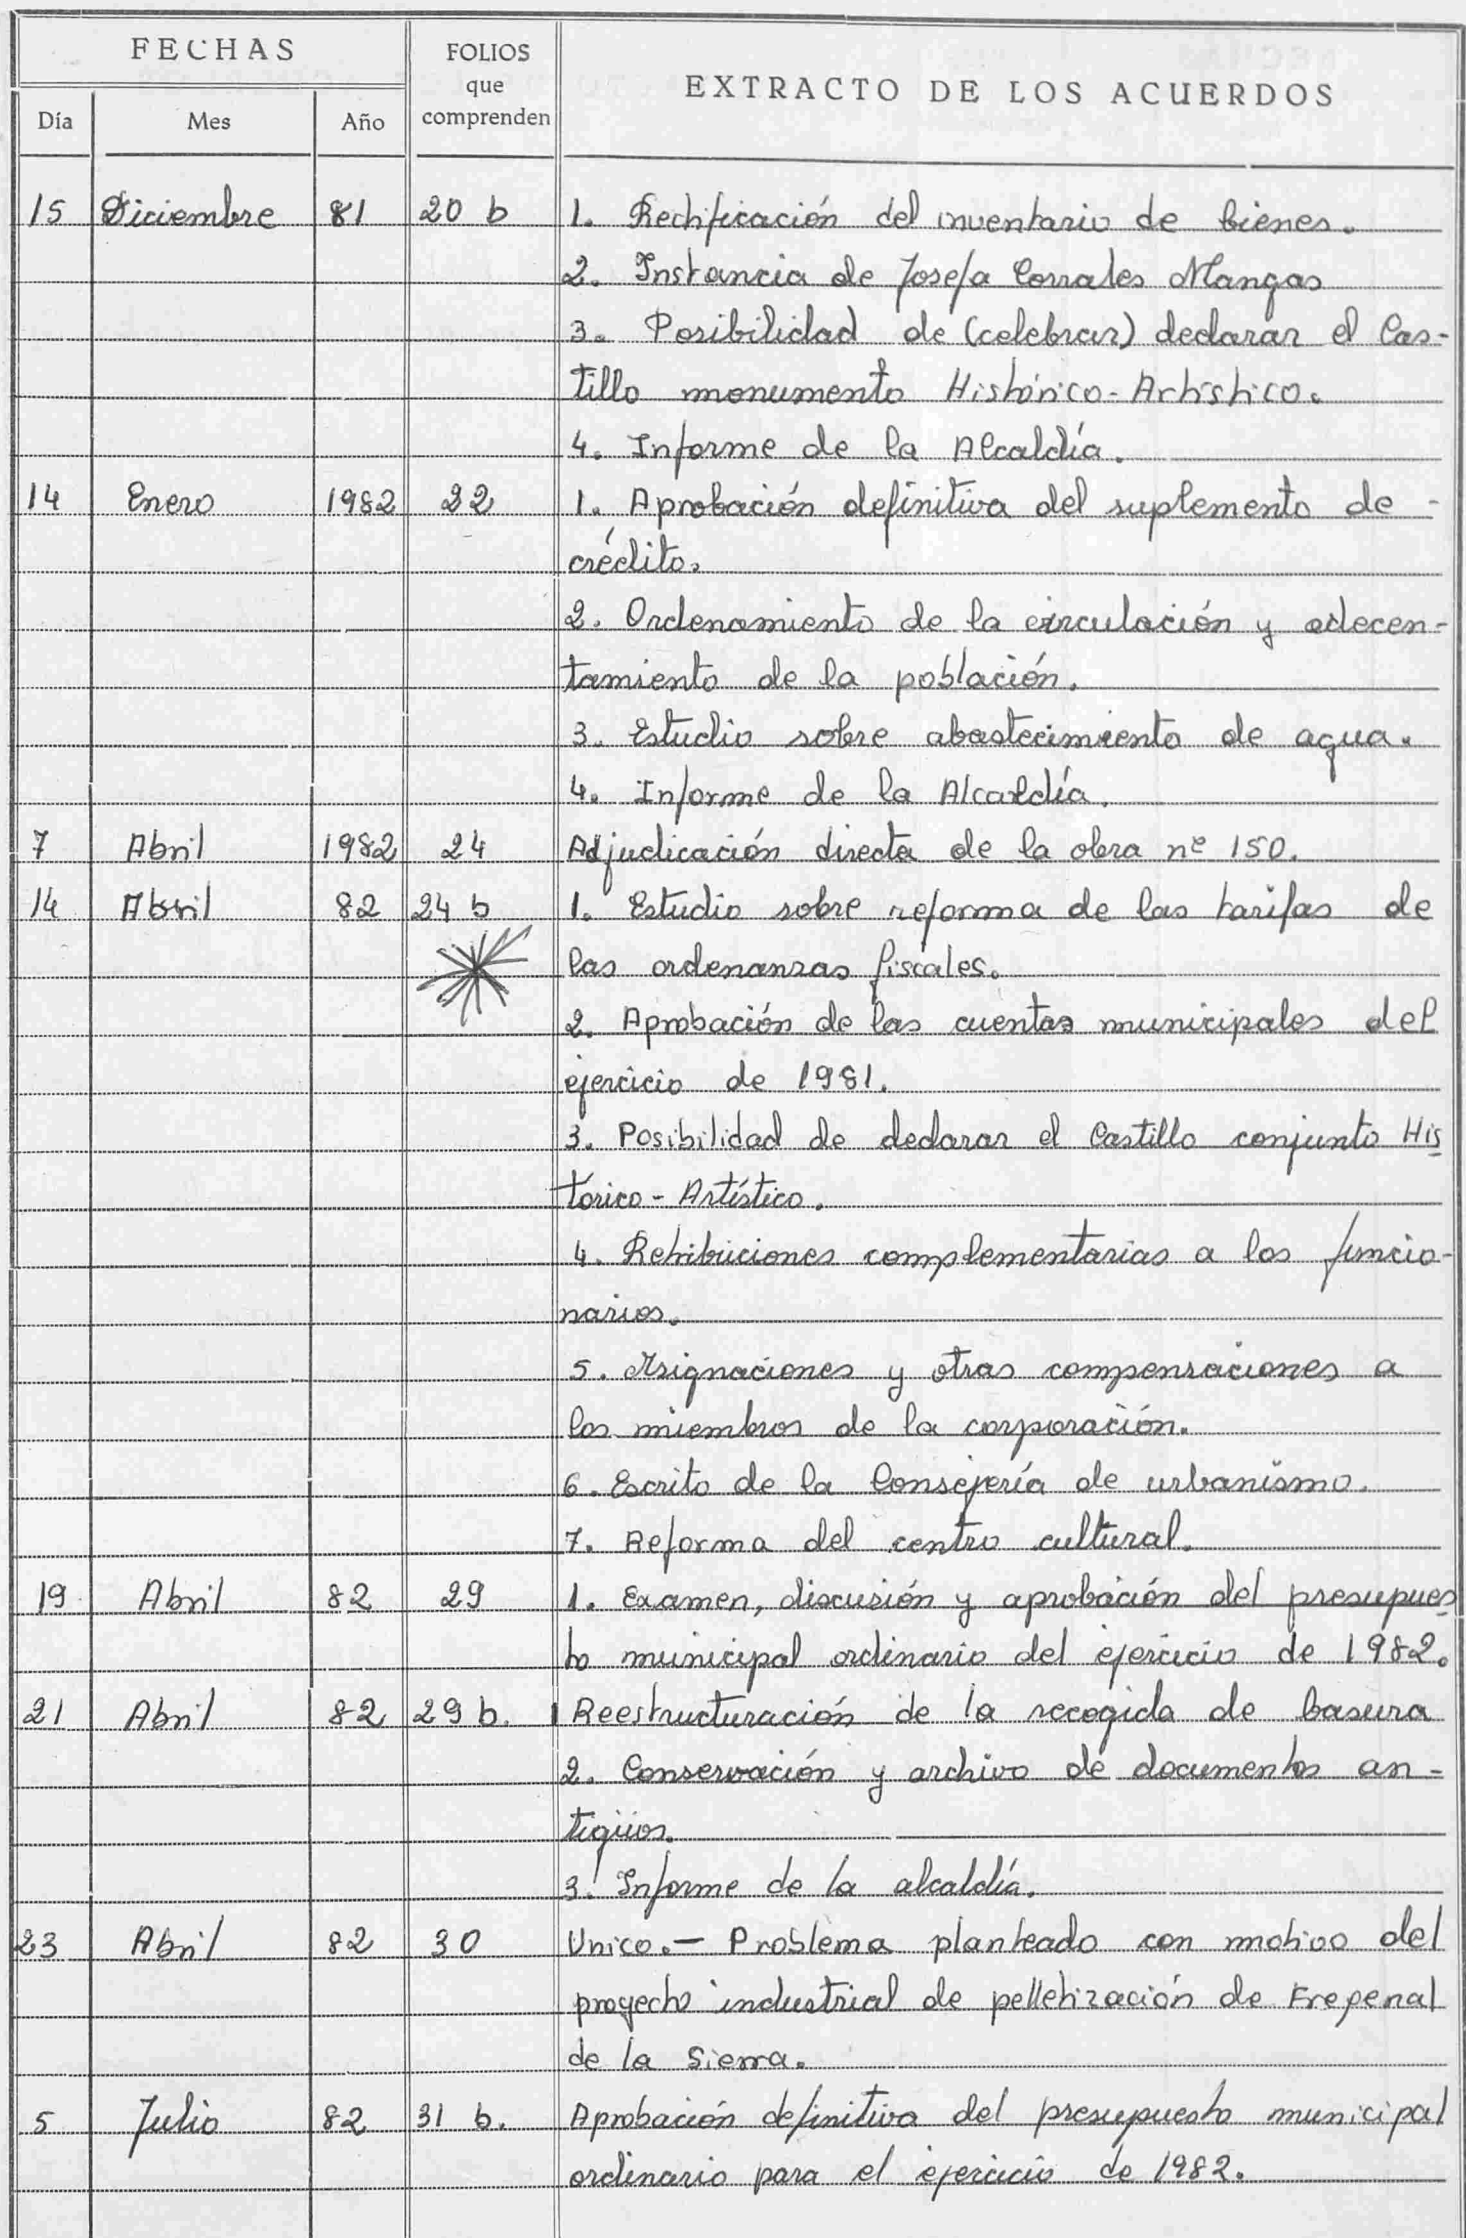 FECHAS FOLIOS que comprenden EXTRACTO DE LOS ACUERDOS
Día Mes Año
15 Diciembre 81 20 b 1. Rectificación del inventario de bienes.
2. Instancia de Josefa Corrales Mangas
3. Posibilidad de (celebrar) declarar el Cas-
tillo monumento Histórico-Artístico.
4. Informe de la Alcaldía.
14 Enero 1982 22 1. Aprobación definitiva del suplemento de -
crédito.
2. Ordenamiento de la circulación y adecen-
tamiento de la población.
3. Estudio sobre abastecimiento de agua.
4. Informe de la Alcaldía.
7 Abril 1982 24 Adjudicación directa de la obra nº 150.
14 Abril 82 24 b 1. Estudio sobre reforma de las tarifas de
las ordenanzas fiscales.
2. Aprobación de las cuentas municipales del
ejercicio de 1981.
3. Posibilidad de declarar el Castillo conjunto His
tórico - Artístico.
4. Retribuciones complementarias a los funcio-
narios.
5. Asignaciones y otras compensaciones a
los miembros de la corporación.
6. Escrito de la Consejería de urbanismo.
7. Reforma del centro cultural.
19 Abril 82 29 1. Examen, discusión y aprobación del presupues
to municipal ordinario del ejercicio de 1982.
21 Abril 82 29 b. 1 Reestructuración de la recogida de basura
2. Conservación y archivo de documentos an-
tigüos.
3. Informe de la alcaldía.
23 Abril 82 30 Unico.- Problema planteado con motivo del
proyecto industrial de pelletización de Fregenal
de la Sierra.
5 Julio 82 31 b. Aprobación definitiva del presupuesto municipal
ordinario para el ejercicio de 1982.